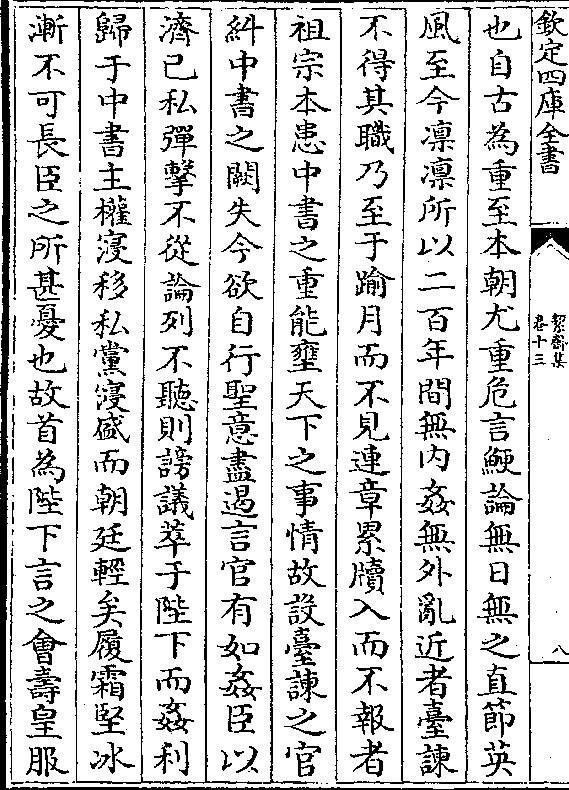 欽定四庫全書
絜齋集
卷十三
八
也自古為重至本朝尤重危言鯁論無日無之直節英
風至今凛凛所以二百年間無内姦無外亂近者臺諫
不得其職乃至于踰月而不見連章累牘入而不報者
祖宗本患中書之重能壅天下之事情故設臺諫之官
糾中書之闕失今欲自行聖意盡遏言官有如姦臣以
濟已私彈擊不從論列不聽則謗議萃于陛下而姦利
歸于中書主權寖移私黨寖盛而朝廷輕矣履霜堅冰
漸不可長臣之所甚憂也故首為陛下言之會壽皇服